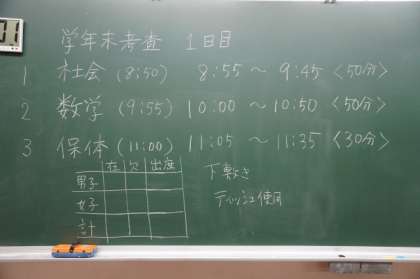 学年末考査 1日目
1 社会 (8:50) 8:55 ～ 9:45 <50分>
2 数学 (9:55) 10:00 ～ 10:50 <50分>
3 保体 (11:00) 11:05 ～ 11:35 <30分>
在 欠 出席
男子
女子
計
下敷き
ティッシュ使用